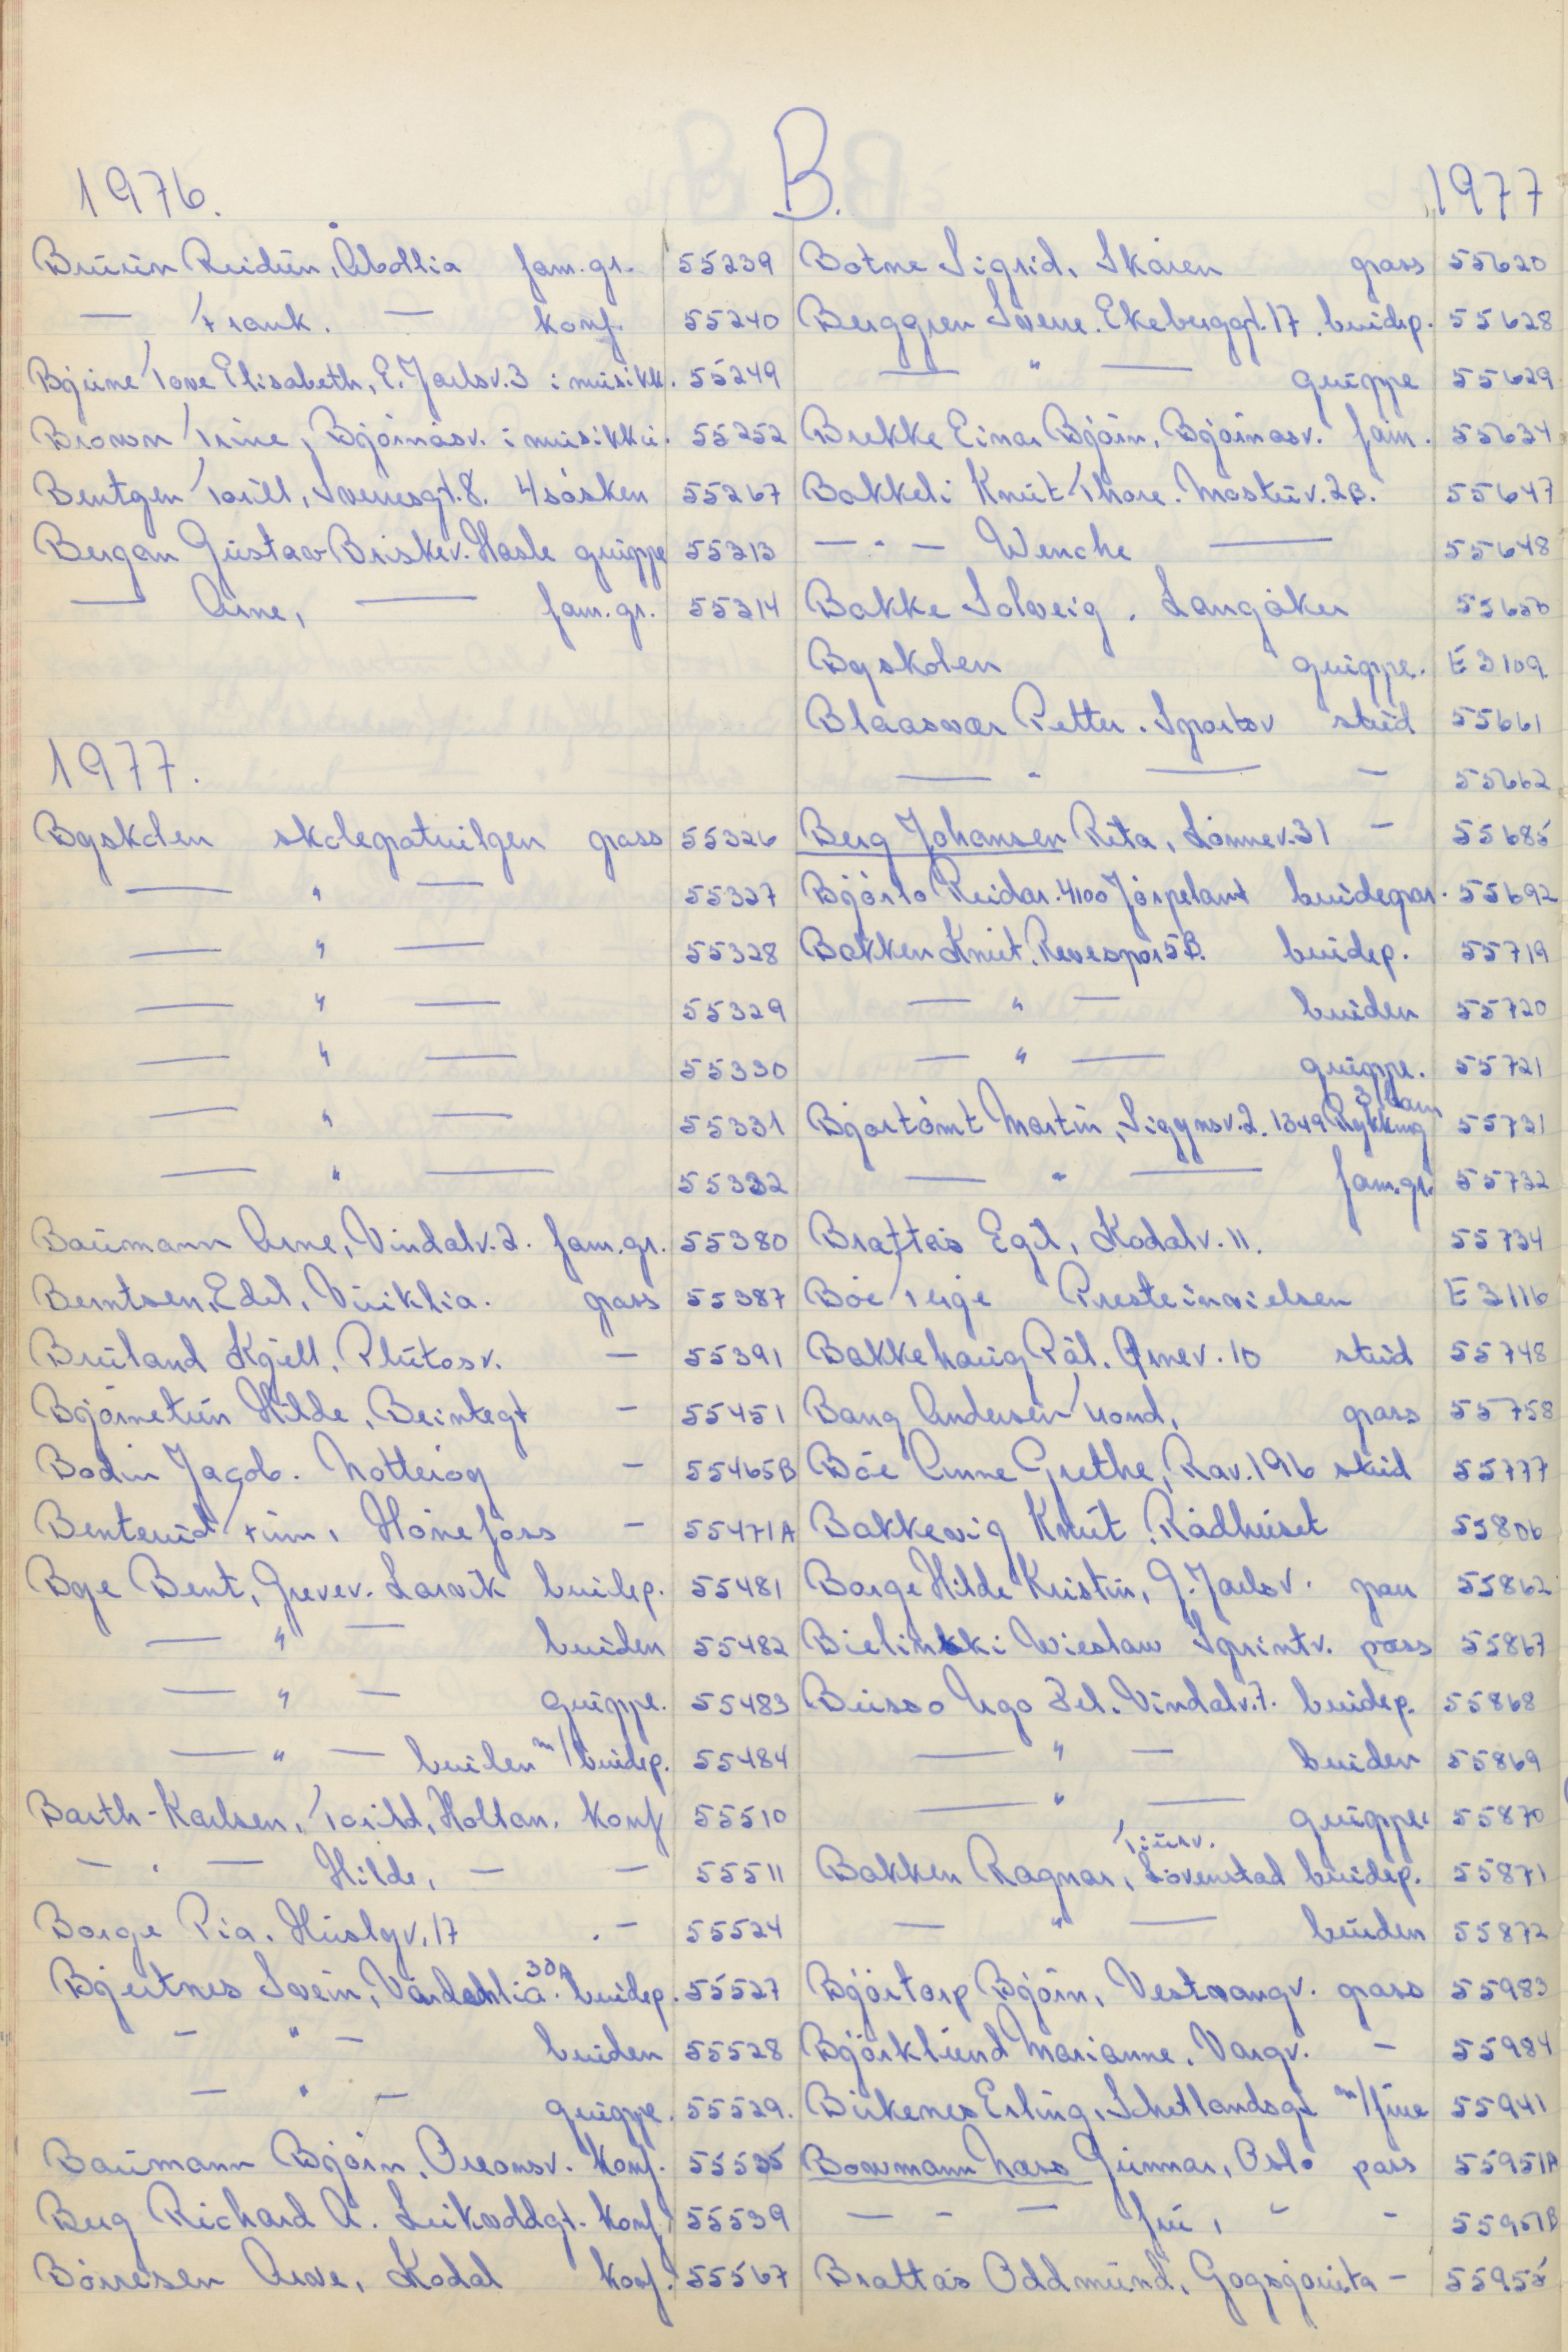 B.
1976.
Bruun Reidun, Abollia fam.gr. 55239
— Frank. — konf. 55240
Bjune Tove Elisabeth, E. Jarlsv. 3 i musikk. 55249
Brown Trine, Bjørnåsv. i musikku. 55252
Bentzen Torill, Sverresgt. 8. 4 søsken 55267
Bergan Gustav Briskev. Hasle gruppe 55313
— Arne, — fam.gr. 55314
1977.
Byskolen skolepatruljen pass 55326
— " — 55327
— " — 55328
— " — 55329
— " — 55330
— " — 55331
— " — 55332
Baumann Arne, Vindalv. 2. fam.gr. 55380
Berntsen, Edel, Viriklia. pass 55387
Bruland Kjell, Plutosv. — 55391
Bjørnetun Hilde, Beintegt — 55451
Bodin Jacob. Nøtterøy — 55465B
Benterud Finn, Hønefoss — 55471A
Bye Bent, Grevev. Larvik brudep. 55481
— " — bruden 55482
— " — gruppe. 55483
— " — bruden m/brudep. 55484
Barth-Karlsen, Torild, Holtan. Konf 55510
— . — Hilde, — — 55511
Borge Pia. Huslyv. 17 . — 55524
Bjertnes Svein, Vardehlia 30A. brudep. 55527
— " — bruden 55528
— " — gruppe. 55529.
Baumann Bjørn, Oreonsv. Konf. 55535
Berg Richard A. Leikvollgt. Konf. 55539
Børresen Arve, Kodal Konf. 55567
1977
Botne Sigrid. Skåren pass 55620
Berggren Sverre. Ekeberggt. 17. brudep. 55628
— " — gruppe 55629
Brekke Einar Bjørn, Bjørnåsv. fam. 55634
Bakkeli Knut Thore. Mastuv. 2B. 55647
— " — Wenche — 55648
Bakke Solveig. Langåker 55650
Byskolen gruppe. E 3109
Blaasvær Petter. Sportsv stud 55661
— " — — 55662
Berg Johansen Rita, Lønnev. 31 — 55685
Bjørlo Reidar. 4100 Jørpeland brudepar. 55692
Bakken Knut. Revespor 5B. brudep. 55719
— " — bruden 55720
— " — gruppe. 55721
Bjortømt Martin, Siggnsv. 2. 1349 Rykkinn 3/barn 55731
— " — fam.gr. 55732
Brattås Egil, Kodalv. 11. 55734
Bøe Terje Presteinvielsen E 3116
Bakkehaug Pål. Ørnev. 10 stud 55748
Bang Andersen Trond, pass 55758
Bøe Anne Grethe, Rav. 196 stud 55777
Bakkevig Knut. Rådhuset 55806
Borge Hilde Kristin, G. Jarlsv. pass 55862
Bielinski Wieslaw Sprintv. pass 55867
Busso Ugo Zel. Vindalv. 7. brudep. 55868
— " — bruden 55869
— " — gruppe 55870
Bakken Ragnar, Tiurv. Løvenstad brudep. 55871
— " — bruden 55872
Bjørtorp Bjørn, Vestvangv. pass 55983
Bjørklund Marianne, Vargv. — 55984
Birkenes Erling, Schetlandsgt m/frue 55941
Bowmann Næss Gunnar, Oslo pass 55951A
— - — fru, " - 55951B
Brattås Oddmund, Gogsjøruta — 55955